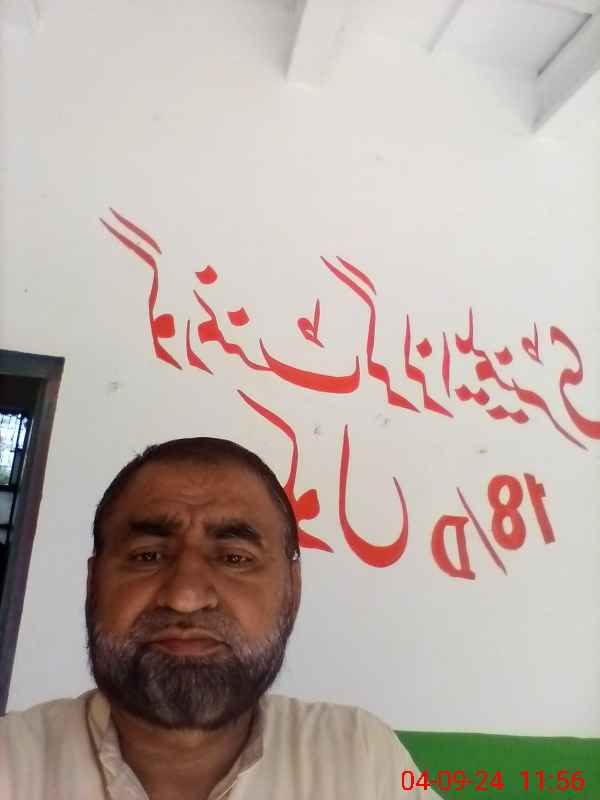 گورنمنٹ گرلز ایلیمنٹری
سکول 18/D
04-09-24 11:56